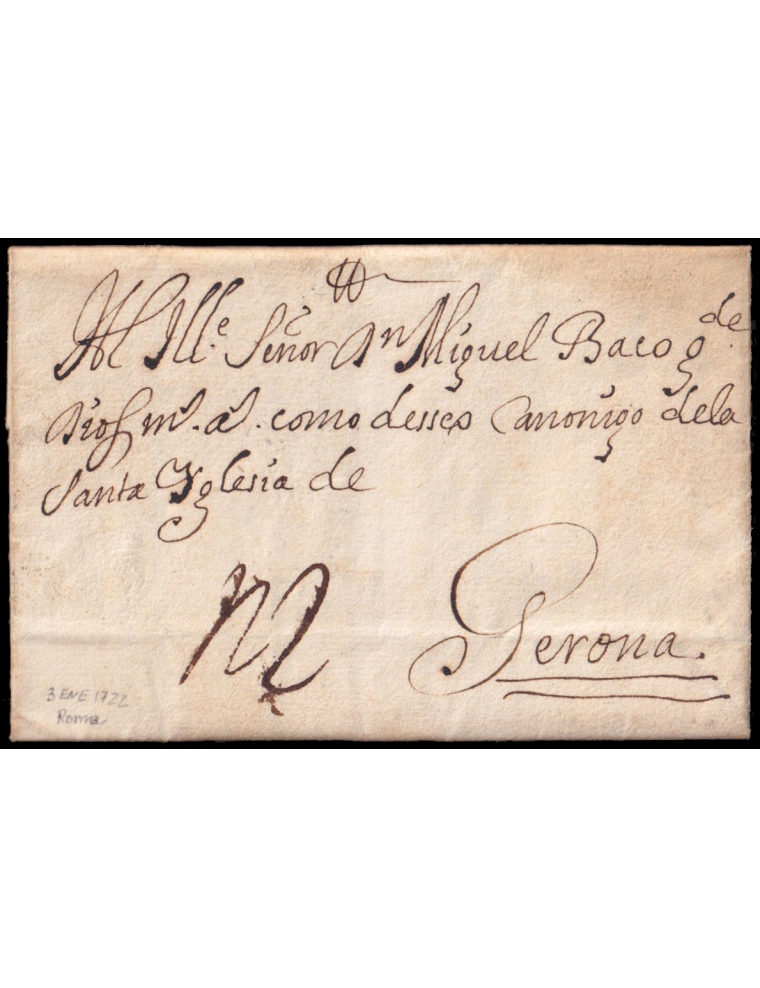 Al Ill.e Señor Dn Miguel Baco g.de
Dios m.s a.s como desseo Canonigo dela
Santa Yglesia de
Gerona.
3 ENE 1722
Roma